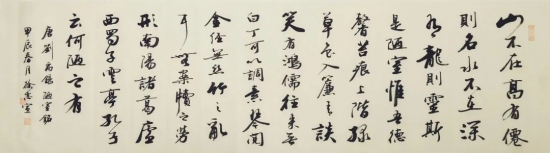 山不在高有僊
則名水不在深
有龍則靈斯
是陋室惟吾德
馨苔痕上階綠
草色入簾青談
笑有鴻儒往來無
白丁可以調素琴閱
金經無絲竹之亂
耳無案牘之勞
形南陽諸葛廬
西蜀子雲亭孔子
云何陋之有
唐劉禹錫陋室銘
甲辰春月徐